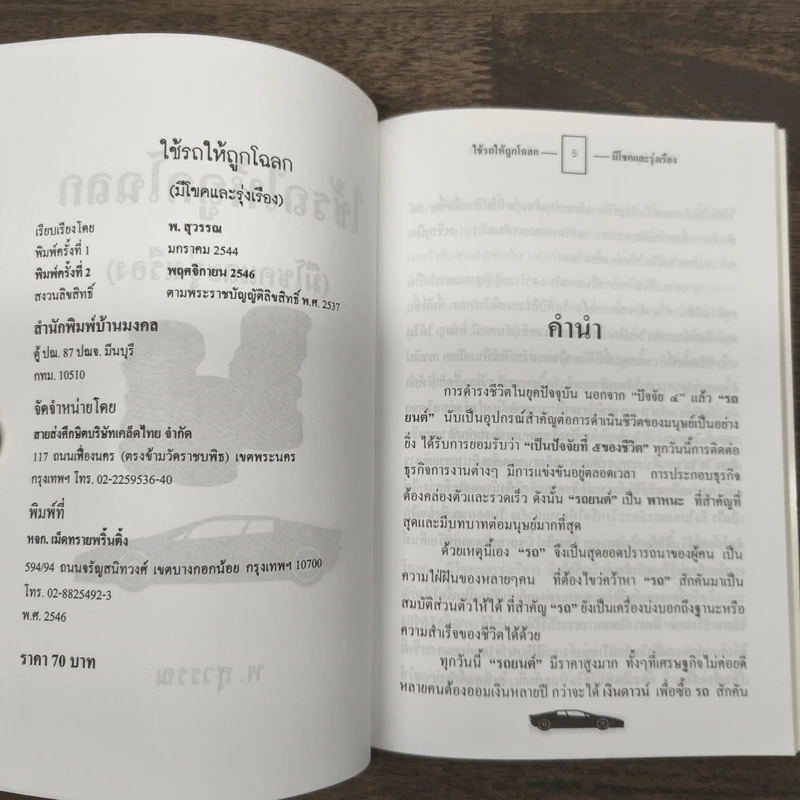 ใช้รถให้ถูกโฉลก
(มีโชคและรุ่งเรือง)
เรียบเรียงโดย พ. สุวรรณ
พิมพ์ครั้งที่ 1 มกราคม 2544
พิมพ์ครั้งที่ 2 พฤศจิกายน 2546
สงวนลิขสิทธิ์ ตามพระราชบัญญัติลิขสิทธิ์ พ.ศ. 2537
สำนักพิมพ์บ้านมงคล
ตู้ ปณ. 87 ปณจ. มีนบุรี
กทม. 10510
จัดจำหน่ายโดย
สายส่งศึกษิตบริษัทเคล็ดไทย จำกัด
117 ถนนเฟื่องนคร (ตรงข้ามวัดราชบพิธ) เขตพระนคร
กรุงเทพฯ โทร. 02-2259536-40
พิมพ์ที่
หจก. เม็ดทรายพริ้นติ้ง
594/94 ถนนจรัญสนิทวงศ์ เขตบางกอกน้อย กรุงเทพฯ 10700
โทร. 02-8825492-3
พ.ศ. 2546
ราคา 70 บาท
ใช้รถให้ถูกโฉลก 5 มีโชคและรุ่งเรือง
คำนำ
การดำรงชีวิตในยุคปัจจุบัน นอกจาก "ปัจจัย ๔" แล้ว "รถ
ยนต์" นับเป็นอุปกรณ์สำคัญต่อการดำเนินชีวิตของมนุษย์เป็นอย่าง
ยิ่ง ได้รับการยอมรับว่า "เป็นปัจจัยที่ ๕ของชีวิต" ทุกวันนี้การติดต่อ
ธุรกิจการงานต่างๆ มีการแข่งขันอยู่ตลอดเวลา การประกอบธุรกิจ
ต้องคล่องตัวและรวดเร็ว ดังนั้น "รถยนต์" เป็น พาหนะ ที่สำคัญที่
สุดและมีบทบาทต่อมนุษย์มากที่สุด
ด้วยเหตุนี้เอง "รถ" จึงเป็นสุดยอดปรารถนาของผู้คน เป็น
ความใฝ่ฝันของหลายๆคน ที่ต้องไขว่คว้าหา "รถ" สักคันมาเป็น
สมบัติส่วนตัวให้ได้ ที่สำคัญ "รถ" ยังเป็นเครื่องบ่งบอกถึงฐานะหรือ
ความสำเร็จของชีวิตได้ด้วย
ทุกวันนี้ "รถยนต์" มีราคาสูงมาก ทั้งๆที่เศรษฐกิจไม่ค่อยดี
หลายคนต้องออมเงินหลายปี กว่าจะได้ เงินดาวน์ เพื่อซื้อ รถ สักคัน